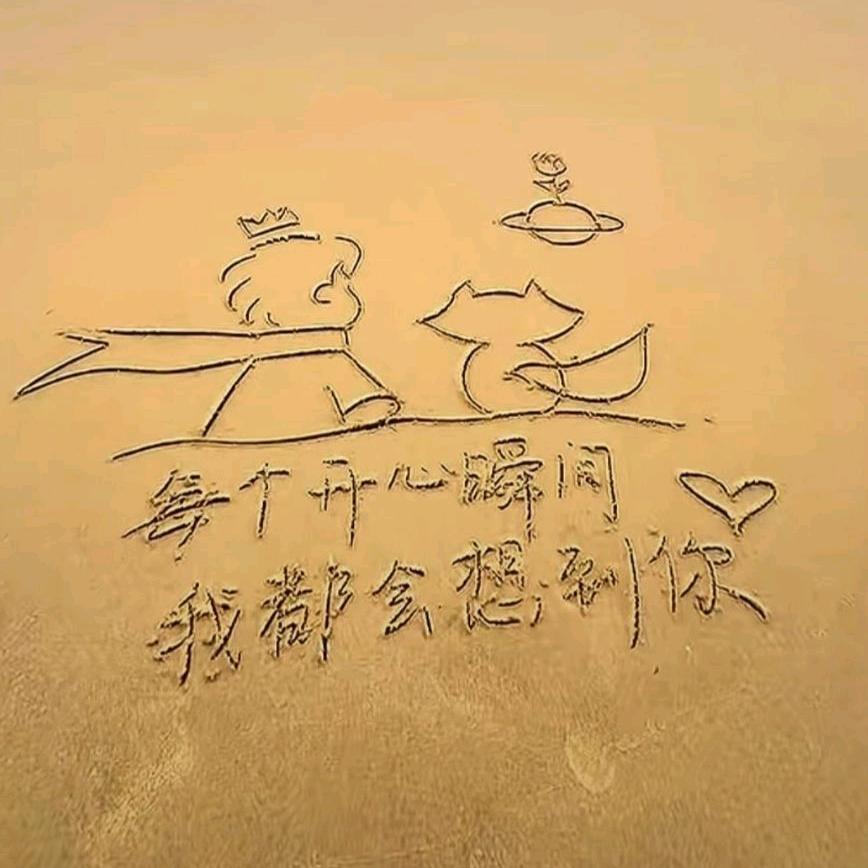 每个开心瞬间
我都会想到你